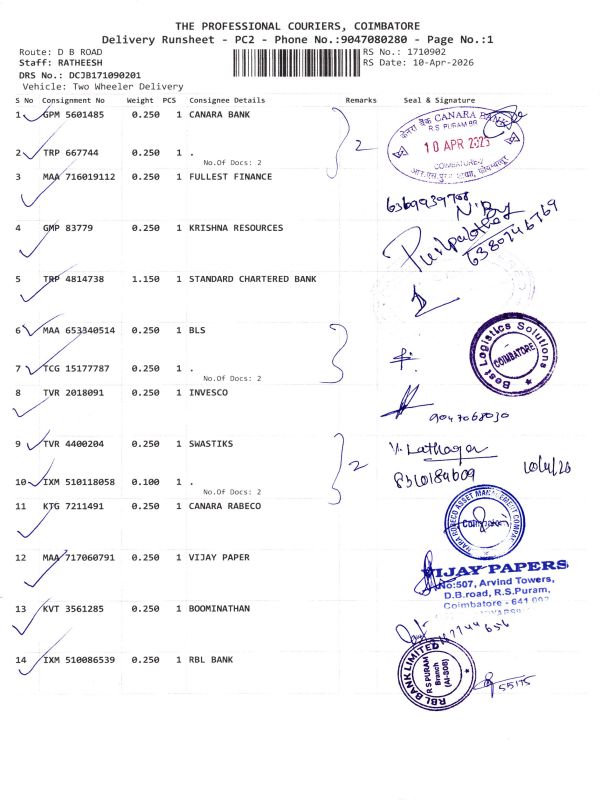 THE PROFESSIONAL COURIERS, COIMBATORE
Delivery Runsheet - PC2 - Phone No.:9047080280 - Page No.:1
Route: D B ROAD
RS No.: 1710902
Staff: RATHEESH
RS Date: 10-Apr-2026
DRS No.: DCJB171090201
Vehicle: Two Wheeler Delivery
S No Consignment No Weight PCS Consignee Details Remarks Seal & Signature
1 GPM 5601485 0.250 1 CANARA BANK
2 TRP 667744 0.250 1 .
No.Of Docs: 2
2
CANARA BANK
R.S PURAM BR
10 APR 2023
COIMBATORE-2
3 MAA 716019112 0.250 1 FULLEST FINANCE
6369939708
4 GMP 83779 0.250 1 KRISHNA RESOURCES
6380746769
5 TRP 4814738 1.150 1 STANDARD CHARTERED BANK
6 MAA 653340514 0.250 1 BLS
7 TCG 15177787 0.250 1 .
No.Of Docs: 2
2
Best Logistics Solutions
COIMBATORE
8 TVR 2018091 0.250 1 INVESCO
9047068030
9 TVR 4400204 0.250 1 SWASTIKS
10 IXM 510118058 0.100 1 .
No.Of Docs: 2
2
10/4/26
11 KTG 7211491 0.250 1 CANARA RABECO
12 MAA 717060791 0.250 1 VIJAY PAPER
VIJAY PAPERS
No:507, Arvind Towers,
D.B.road, R.S.Puram,
Coimbatore - 641 002
13 KVT 3561285 0.250 1 BOOMINATHAN
14 IXM 510086539 0.250 1 RBL BANK
RBL BANK LIMITED
R S PURAM
Branch
55175